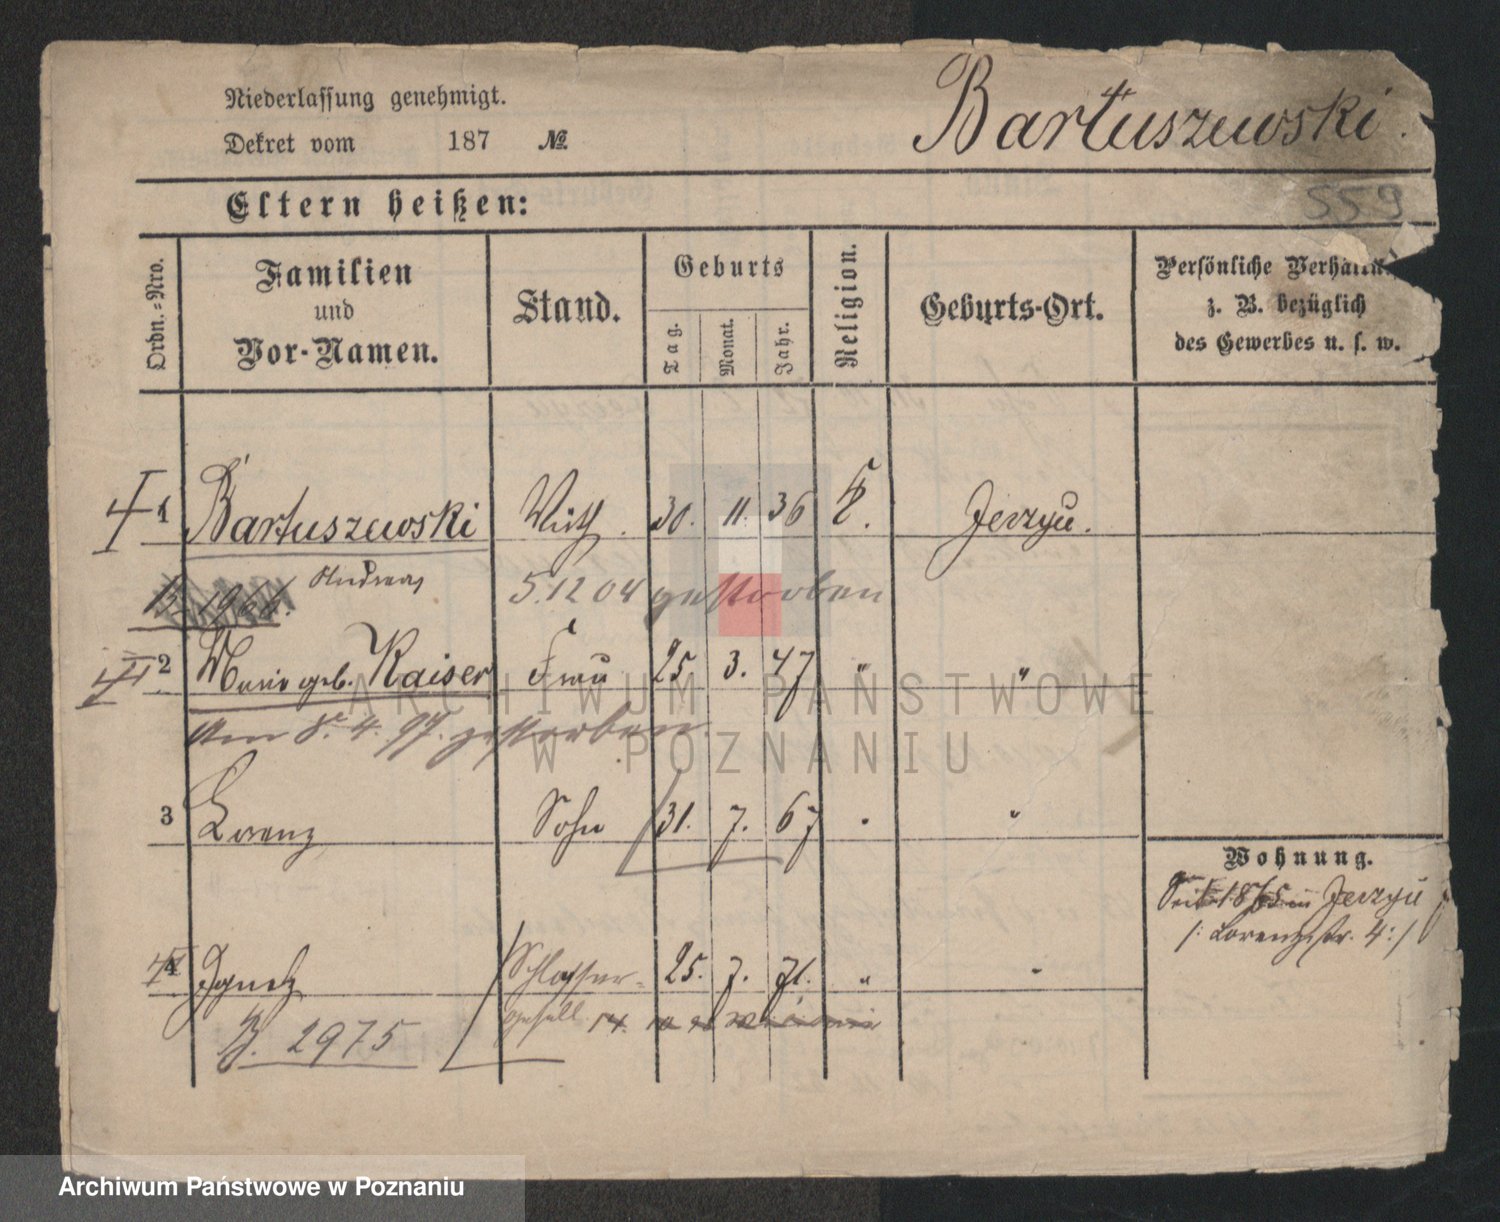 Niederlassung genehmigt.
Dekret vom 187 №
Bartuszewski.
559
Eltern heißen:
Ordn.-Nro.
Familien
und
Vor-Namen.
Stand.
Geburts
Tag.
Monat.
Jahr.
Religion.
Geburts-Ort.
Persönliche Verhältn.
z. B. bezüglich
des Gewerbes u. s. w.
1 Bartuszewski Wirth. 30. 11. 36 Jerzyu.
Andreas 5.12 04 gestorben
2 Marie geb. Kaiser Frau 25 3. 47 " "
Am 8. 4. 97. gestorben.
3 Lorenz Sohn 31. 7. 67 " "
Wohnung.
Seit 1865 in Jerzyu
/: Lorenzstr. 4 :/
4 Ignatz Schlosser- 25. 7. 71. " "
gesell
J. 2975
ARCHIWUM PAŃSTWOWE
W POZNANIU
Archiwum Państwowe w Poznaniu